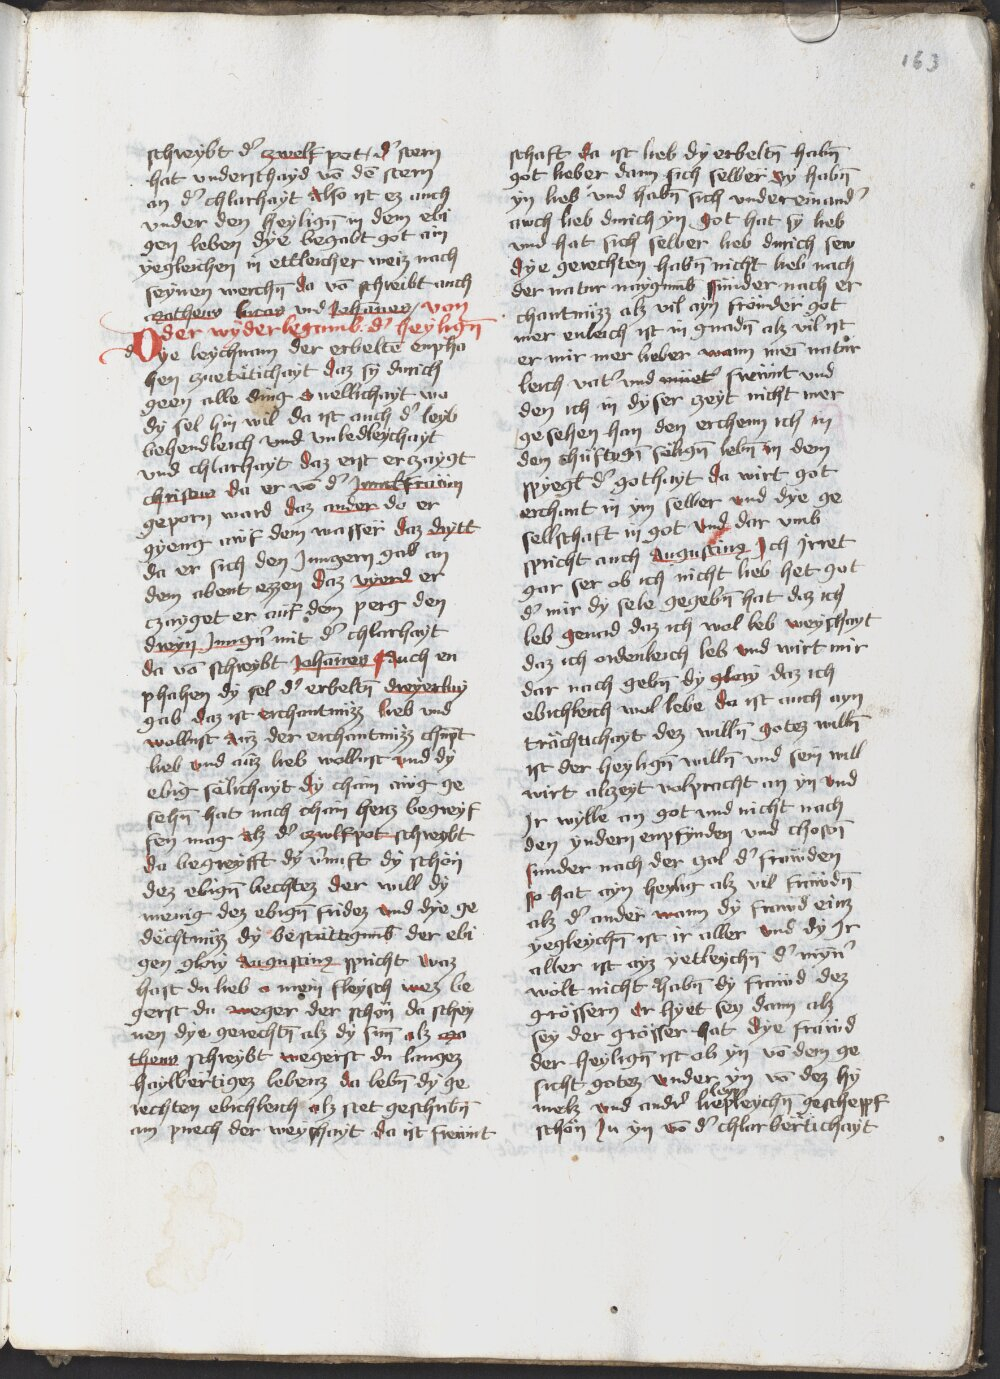 163
schreybt d' czwelf pot / d' stern
hat vnderschayd vō dē stern
an d' chlarhayt Also ist ez auch
vnder den heylign̄ in dem ebi
gen leben dÿe begabt got ain
yegleichen in ettleicher weiz nach
seynen werchn̄ da vō schreibt auch
matheus lucas vnd Johānes / von
der wyderbegamb d' heyligñ
Dye leychnam der erbelte enpha
hen zwetëtichayt daz sy durich
geen alle ding Snellichayt wo
dy sel hin wil da ist auch d' leyb
behendleich vnd vnledleychayt
vnd chlarhayt daz erst erczaygt
christus da er vō d' Junckfrawn
geporn ward daz ander do er
gyeng awf dem wasser daz drytt
da er sich den Jungern gab an
dem abent ezzen daz vyerd er
czayget er auf dem perg den
dreyn Jungn̄ mit d' chlarhayt
da vō schreybt Johānes Auch en
phahen dy sel d' erbeltn̄ dreyerlay
gab daz ist erchantnüzz lieb vnd
wollust Auz der erchantnüzz chūpt
lieb vnd auz lieb wollust vnd dy
ebig sälichayt dy chain awg ge
sehn̄ hat nach chain hercz begreyf
fen mag Alz d' czwlfpot schreybt
da begreyfft dy v'nuft dy schön
dez ebign̄ liechtez der will dy
menig dez ebign̄ fridez vnd dye ge
dëchtnüzz dy bestättigumb der ebi
gen glory Augustinus spricht waz
hast du lieb o mein fleysch wez be
gerst du weger der schön da schey
nen dye gerechtn̄ alz dy sun alz ma
theus schreybt wegerst du langez
haylbertigez lebens da lebn̄ dy ge
rechten ebichleich alz stet geschribn̄
am puech der weyshayt da ist frewnt
schaft da ist lieb dy erbeltn̄ habn̄
got lieber dann sich selber vy habn̄
yn lieb vnd habn̄ sich vndereinand'
awch lieb durich yn got hat sy lieb
vnd hat sich selber lieb durich sew
dye gerechten habn̄ nicht lieb nach
der natur naygumb sunder nach er
chantnüzz alz vil ayn frömder got
mer enleich ist in gnadn̄ alz vil ist
er mir mer lieber wann mei natur
leich vat' vnd müet' frewnt vnd
den ich in dyser zeyt nicht mer
gesehen han den erchenn ich in
den chüftign̄ sälign̄ lebn̄ in dem
spyegl d' gothayt da wirt got
erchant in ym selber vnd dye ge
sellschaft in got vnd dar vmb
spricht auch Augustinus Ich Irret
gar ser ob ich nicht lieb het got
d' mir dy sele gegebn̄ hat daz ich
leb genad daz ich wol leb weyshayt
daz ich ordenleich leb vnd wirt mir
dar nach gebn̄ dy glory daz ich
ebichleich wol lebe da ist auch ayn
trächtichayt dez willn̄ gotez willn̄
ist der heylign̄ willn̄ vnd sein will
wirt alczeyt volpracht an yn vnd
Ir wylle an got vnd nicht nach
den yndern enpfynden vnd chosō
sunder nach der zal d' frawden
so hat ayn heylig alz vil frawdn̄
alz d' ander wann dy frawd einz
yegleychn̄ ist ir aller vnd dy Ir
aller ist ayz yetleychn̄ d' myn'
wölt nicht habn̄ dy frawd dez
grössern er hyet sey dann alz
sey der grösser hat dye frawd
der heylign̄ ist ob yn vō dem ge
sicht gotez vnder yn vō dez hy
melz vnd and' liepleychn̄ gescheppf
schön In yn vō d' chlarbertichayt